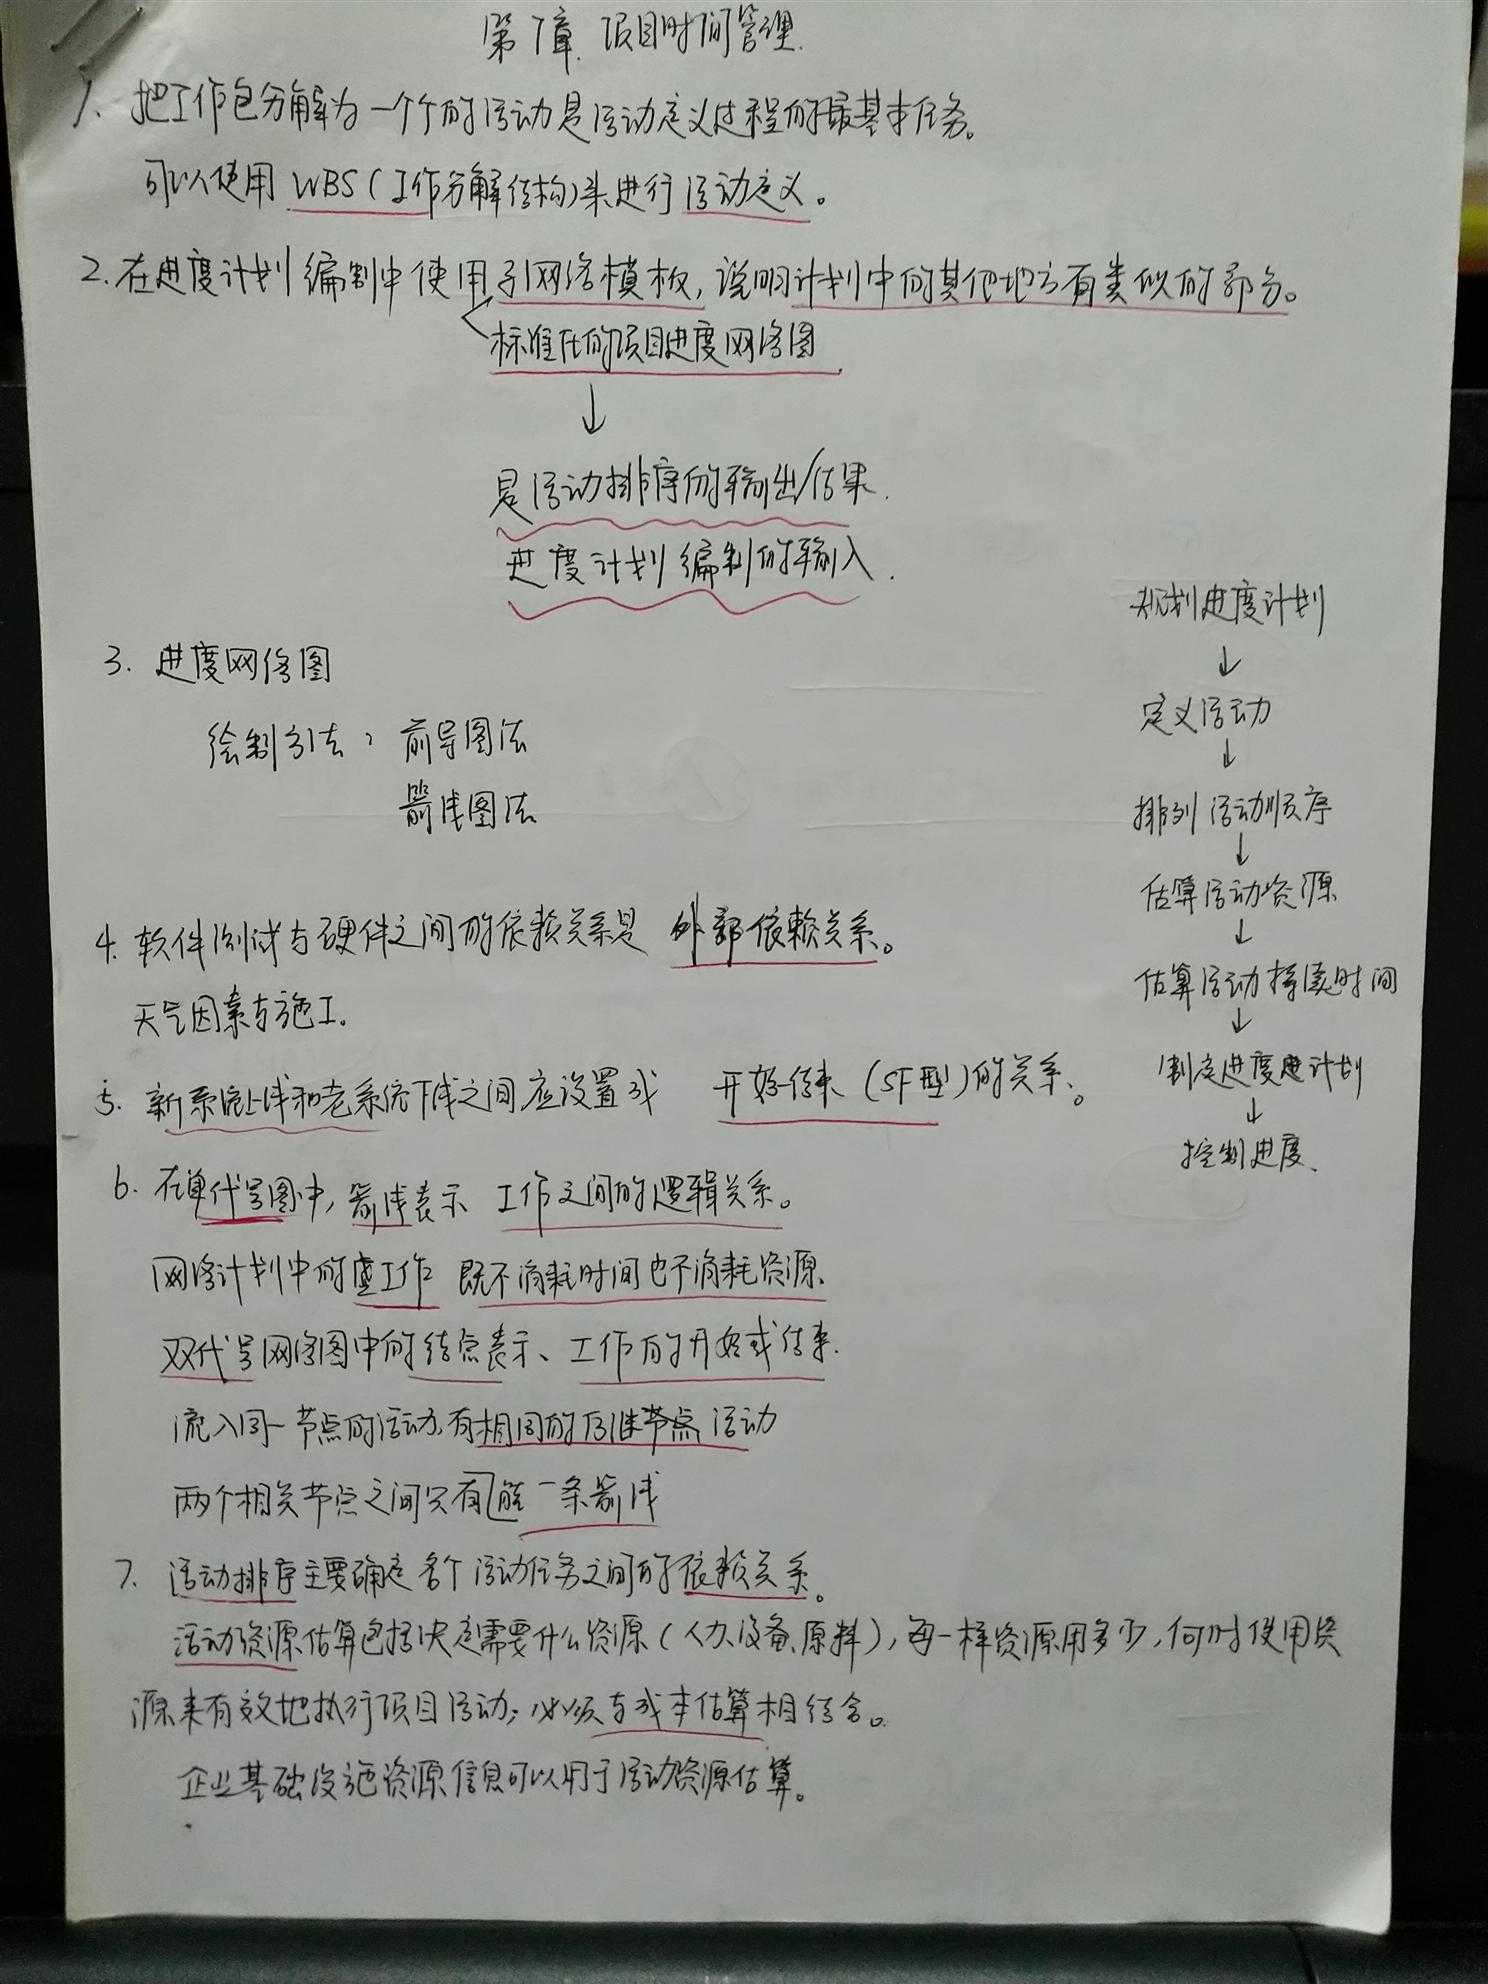 第7章 项目时间管理.
1、把工作包分解为一个个的活动是活动定义过程的最基本任务。
可以使用 WBS(工作分解结构)来进行活动定义。
2.在进度计划编制中使用子网络模板,说明计划中的其他地方有类似的部分。
标准化的项目进度网络图
↓
是活动排序的输出/结果.
进度计划编制的输入.
3. 进度网络图
绘制方法: 前导图法
箭线图法
规划进度计划
↓
定义活动
↓
排列活动顺序
↓
估算活动资源
↓
估算活动持续时间
↓
制定进度计划
↓
控制进度、
4. 软件测试与硬件之间的依赖关系是 外部依赖关系。
天气因素与施工.
5. 新系统上线和老系统下线之间应设置成 开始-结束 (SF型)的关系。
6. 在单代号图中,箭线表示 工作之间的逻辑关系。
网络计划中的虚工作 既不消耗时间也不消耗资源.
双代号网络图中的结点表示、工作的开始或结束.
流入同一节点的活动,有相同的后继节点 活动
两个相关节点之间只有能一条箭线
7. 活动排序主要确定各个活动任务之间的依赖关系。
活动资源估算包括决定需要什么资源(人力、设备、原料),每一样资源用多少,何时使用资
源来有效地执行项目活动;必须与成本估算相结合。
企业基础设施资源信息可以用于活动资源估算。